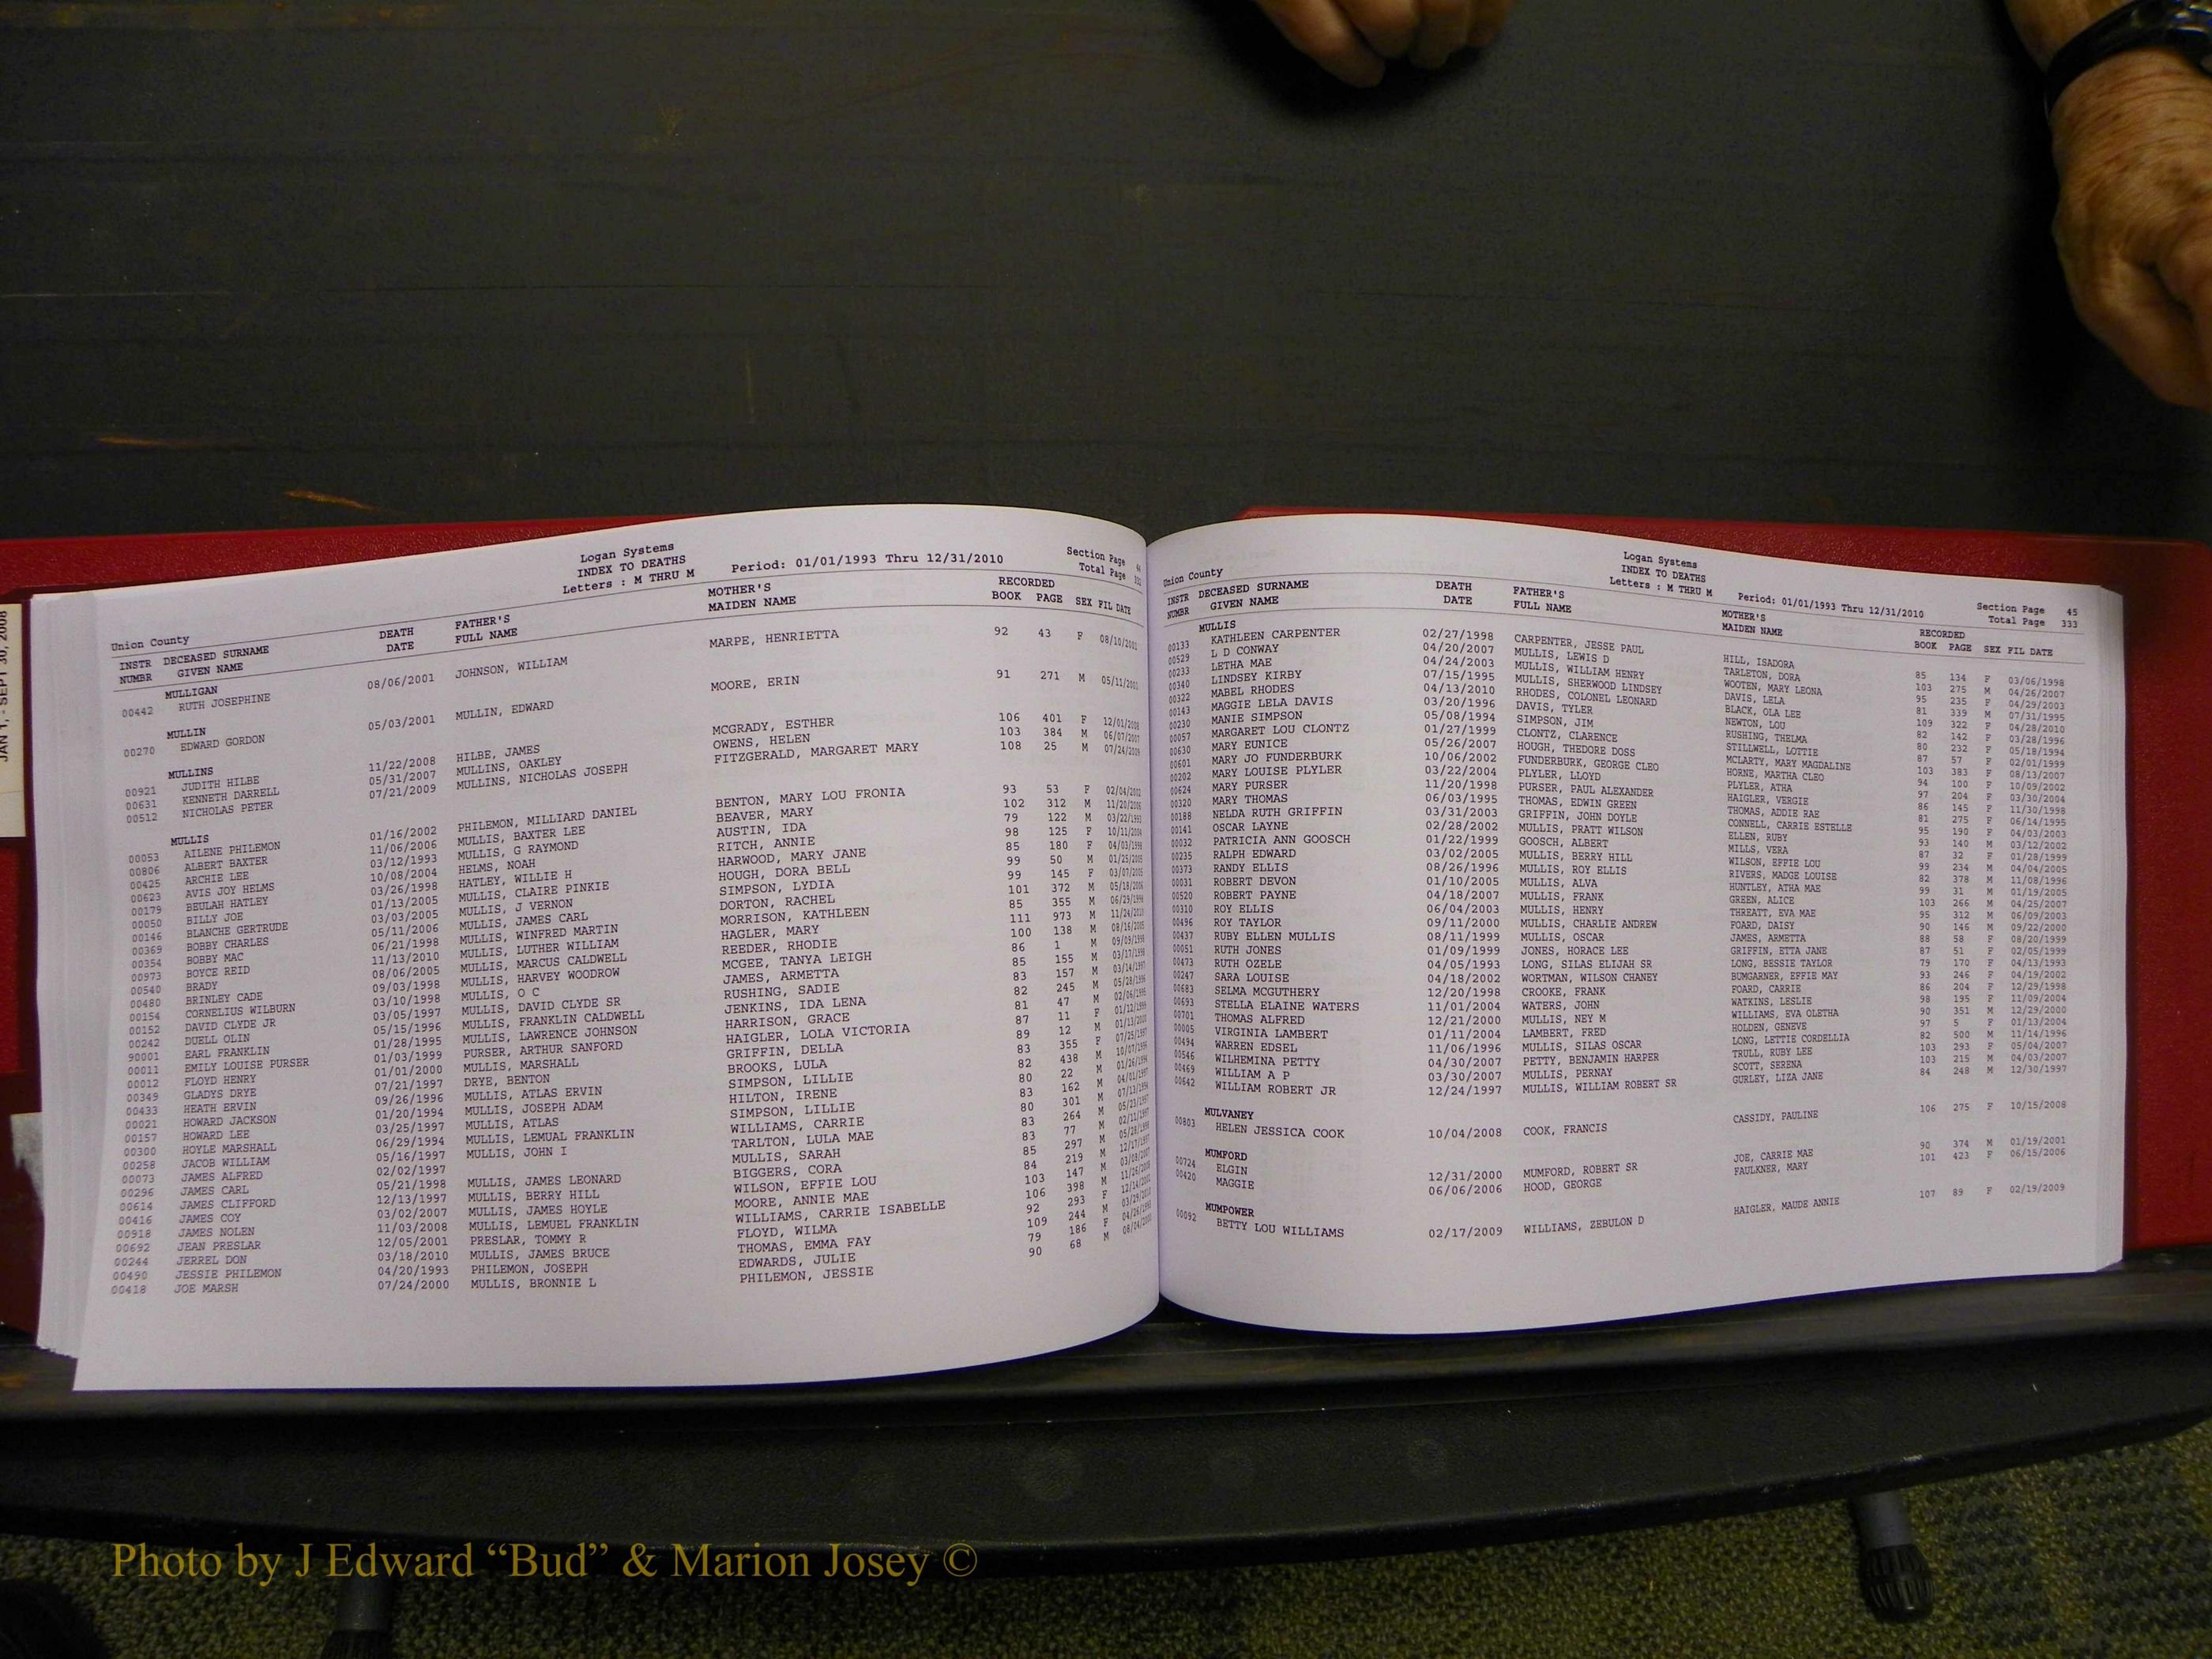 JAN 1, - SEPT 30, 2008
Logan Systems
INDEX TO DEATHS
Union County Letters : M THRU M Period: 01/01/1993 Thru 12/31/2010 Section Page 44
Total Page 332
INSTR DECEASED SURNAME DEATH FATHER'S MOTHER'S RECORDED
NUMBR GIVEN NAME DATE FULL NAME MAIDEN NAME BOOK PAGE SEX FIL DATE
MULLIGAN
00442 RUTH JOSEPHINE 08/06/2001 JOHNSON, WILLIAM MARPE, HENRIETTA 92 43 F 08/10/2001
MULLIN
00270 EDWARD GORDON 05/03/2001 MULLIN, EDWARD MOORE, ERIN 91 271 M 05/11/2001
MULLINS
00921 JUDITH HILBE 11/22/2008 HILBE, JAMES MCGRADY, ESTHER 106 401 F 12/01/2008
00631 KENNETH DARRELL 05/31/2007 MULLINS, OAKLEY OWENS, HELEN 103 384 M 06/07/2007
00512 NICHOLAS PETER 07/21/2009 MULLINS, NICHOLAS JOSEPH FITZGERALD, MARGARET MARY 108 25 M 07/24/2009
MULLIS
00053 AILENE PHILEMON 01/16/2002 PHILEMON, MILLIARD DANIEL BENTON, MARY LOU FRONIA 93 53 F 02/04/2002
00806 ALBERT BAXTER 11/06/2006 MULLIS, BAXTER LEE BEAVER, MARY 102 312 M 11/20/2006
00425 ARCHIE LEE 03/12/1993 MULLIS, G RAYMOND AUSTIN, IDA 79 122 M 03/22/1993
00623 AVIS JOY HELMS 10/08/2004 HELMS, NOAH RITCH, ANNIE 98 125 F 10/11/2004
00179 BEULAH HATLEY 03/26/1998 HATLEY, WILLIE H HARWOOD, MARY JANE 85 180 F 04/03/1998
00050 BILLY JOE 01/13/2005 MULLIS, CLAIRE PINKIE HOUGH, DORA BELL 99 50 M 01/25/2005
00146 BLANCHE GERTRUDE 03/03/2005 MULLIS, J VERNON SIMPSON, LYDIA 99 145 F 03/07/2005
00369 BOBBY CHARLES 05/11/2006 MULLIS, JAMES CARL DORTON, RACHEL 101 372 M 05/18/2006
00354 BOBBY MAC 06/21/1998 MULLIS, WINFRED MARTIN MORRISON, KATHLEEN 85 355 M 06/29/1998
00973 BOYCE REID 11/13/2010 MULLIS, LUTHER WILLIAM HAGLER, MARY 111 973 M 11/24/2010
00540 BRADY 08/06/2005 MULLIS, MARCUS CALDWELL REEDER, RHODIE 100 138 M 08/16/2005
00480 BRINLEY CADE 09/03/1998 MULLIS, HARVEY WOODROW MCGEE, TANYA LEIGH 86 1 M 09/09/1998
00154 CORNELIUS WILBURN 03/10/1998 MULLIS, O C JAMES, ARMETTA 85 155 M 03/17/1998
00152 DAVID CLYDE JR 03/05/1997 MULLIS, DAVID CLYDE SR RUSHING, SADIE 83 157 M 03/14/1997
00242 DUELL OLIN 05/15/1996 MULLIS, FRANKLIN CALDWELL JENKINS, IDA LENA 82 245 M 05/28/1996
90001 EARL FRANKLIN 01/28/1995 MULLIS, LAWRENCE JOHNSON HARRISON, GRACE 81 47 M 02/06/1995
00011 EMILY LOUISE PURSER 01/03/1999 PURSER, ARTHUR SANFORD HAIGLER, LOLA VICTORIA 87 11 F 01/12/1999
00012 FLOYD HENRY 01/01/2000 MULLIS, MARSHALL GRIFFIN, DELLA 89 12 M 01/13/2000
00349 GLADYS DRYE 07/21/1997 DRYE, BENTON BROOKS, LULA 83 355 F 07/25/1997
00433 HEATH ERVIN 09/26/1996 MULLIS, ATLAS ERVIN SIMPSON, LILLIE 82 438 M 10/07/1996
00021 HOWARD JACKSON 01/20/1994 MULLIS, JOSEPH ADAM HILTON, IRENE 80 22 M 01/26/1994
00157 HOWARD LEE 03/25/1997 MULLIS, ATLAS SIMPSON, LILLIE 83 162 M 04/01/1997
00300 HOYLE MARSHALL 06/29/1994 MULLIS, LEMUAL FRANKLIN WILLIAMS, CARRIE 80 301 M 07/13/1994
00258 JACOB WILLIAM 05/16/1997 MULLIS, JOHN I TARLTON, LULA MAE 83 264 M 05/23/1997
00073 JAMES ALFRED 02/02/1997 MULLIS, SARAH 83 77 M 02/11/1997
00296 JAMES CARL 05/21/1998 MULLIS, JAMES LEONARD BIGGERS, CORA 85 297 M 05/28/1998
00614 JAMES CLIFFORD 12/13/1997 MULLIS, BERRY HILL WILSON, EFFIE LOU 84 219 M 12/17/1997
00416 JAMES COY 03/02/2007 MULLIS, JAMES HOYLE MOORE, ANNIE MAE 103 147 M 03/09/2007
00918 JAMES NOLEN 11/03/2008 MULLIS, LEMUEL FRANKLIN WILLIAMS, CARRIE ISABELLE 106 398 M 11/26/2008
00692 JEAN PRESLAR 12/05/2001 PRESLAR, TOMMY R FLOYD, WILMA 92 293 F 12/14/2001
00244 JERREL DON 03/18/2010 MULLIS, JAMES BRUCE THOMAS, EMMA FAY 109 244 M 03/29/2010
00490 JESSIE PHILEMON 04/20/1993 PHILEMON, JOSEPH EDWARDS, JULIE 79 186 F 04/26/1993
00418 JOE MARSH 07/24/2000 MULLIS, BRONNIE L PHILEMON, JESSIE 90 68 M 08/04/2000
Logan Systems
INDEX TO DEATHS
Union County Letters : M THRU M Period: 01/01/1993 Thru 12/31/2010 Section Page 45
Total Page 333
INSTR DECEASED SURNAME DEATH FATHER'S MOTHER'S RECORDED
NUMBR GIVEN NAME DATE FULL NAME MAIDEN NAME BOOK PAGE SEX FIL DATE
MULLIS
00133 KATHLEEN CARPENTER 02/27/1998 CARPENTER, JESSE PAUL HILL, ISADORA 85 134 F 03/06/1998
00529 L D CONWAY 04/20/2007 MULLIS, LEWIS D TARLETON, DORA 103 275 M 04/26/2007
00233 LETHA MAE 04/24/2003 MULLIS, WILLIAM HENRY WOOTEN, MARY LEONA 95 235 F 04/29/2003
00340 LINDSEY KIRBY 07/15/1995 MULLIS, SHERWOOD LINDSEY DAVIS, LELA 81 339 M 07/31/1995
00322 MABEL RHODES 04/13/2010 RHODES, COLONEL LEONARD BLACK, OLA LEE 109 322 F 04/28/2010
00143 MAGGIE LELA DAVIS 03/20/1996 DAVIS, TYLER NEWTON, LOU 82 142 F 03/28/1996
00230 MANIE SIMPSON 05/08/1994 SIMPSON, JIM RUSHING, THELMA 80 232 F 05/18/1994
00057 MARGARET LOU CLONTZ 01/27/1999 CLONTZ, CLARENCE STILLWELL, LOTTIE 87 57 F 02/01/1999
00630 MARY EUNICE 05/26/2007 HOUGH, THEDORE DOSS MCLARTY, MARY MAGDALINE 103 383 F 08/13/2007
00601 MARY JO FUNDERBURK 10/06/2002 FUNDERBURK, GEORGE CLEO HORNE, MARTHA CLEO 94 100 F 10/09/2002
00202 MARY LOUISE PLYLER 03/22/2004 PLYLER, LLOYD PLYLER, ATHA 97 204 F 03/30/2004
00624 MARY PURSER 11/20/1998 PURSER, PAUL ALEXANDER HAIGLER, VERGIE 86 145 F 11/30/1998
00320 MARY THOMAS 06/03/1995 THOMAS, EDWIN GREEN THOMAS, ADDIE RAE 81 275 F 06/14/1995
00188 NELDA RUTH GRIFFIN 03/31/2003 GRIFFIN, JOHN DOYLE CONNELL, CARRIE ESTELLE 95 190 F 04/03/2003
00141 OSCAR LAYNE 02/28/2002 MULLIS, PRATT WILSON ELLEN, RUBY 93 140 M 03/12/2002
00032 PATRICIA ANN GOOSCH 01/22/1999 GOOSCH, ALBERT MILLS, VERA 87 32 F 01/28/1999
00235 RALPH EDWARD 03/02/2005 MULLIS, BERRY HILL WILSON, EFFIE LOU 99 234 M 04/04/2005
00373 RANDY ELLIS 08/26/1996 MULLIS, ROY ELLIS RIVERS, MADGE LOUISE 82 378 M 11/08/1996
00031 ROBERT DEVON 01/10/2005 MULLIS, ALVA HUNTLEY, ATHA MAE 99 31 M 01/19/2005
00520 ROBERT PAYNE 04/18/2007 MULLIS, FRANK GREEN, ALICE 103 266 M 04/25/2007
00310 ROY ELLIS 06/04/2003 MULLIS, HENRY THREATT, EVA MAE 95 312 M 06/09/2003
00496 ROY TAYLOR 09/11/2000 MULLIS, CHARLIE ANDREW FOARD, DAISY 90 146 M 09/22/2000
00437 RUBY ELLEN MULLIS 08/11/1999 MULLIS, OSCAR JAMES, ARMETTA 88 58 F 08/20/1999
00051 RUTH JONES 01/09/1999 JONES, HORACE LEE GRIFFIN, ETTA JANE 87 51 F 02/05/1999
00473 RUTH OZELE 04/05/1993 LONG, SILAS ELIJAH SR LONG, BESSIE TAYLOR 79 170 F 04/13/1993
00247 SARA LOUISE 04/18/2002 WORTMAN, WILSON CHANEY BUMGARNER, EFFIE MAY 93 246 F 04/19/2002
00683 SELMA MCGUTHERY 12/20/1998 CROOKE, FRANK FOARD, CARRIE 86 204 F 12/29/1998
00693 STELLA ELAINE WATERS 11/01/2004 WATERS, JOHN WATKINS, LESLIE 98 195 F 11/09/2004
00701 THOMAS ALFRED 12/21/2000 MULLIS, NEY M WILLIAMS, EVA OLETHA 90 351 M 12/29/2000
00005 VIRGINIA LAMBERT 01/11/2004 LAMBERT, FRED HOLDEN, GENEVE 97 5 F 01/13/2004
00494 WARREN EDSEL 11/06/1996 MULLIS, SILAS OSCAR LONG, LETTIE CORDELLIA 82 500 M 11/14/1996
00546 WILHEMINA PETTY 04/30/2007 PETTY, BENJAMIN HARPER TRULL, RUBY LEE 103 293 F 05/04/2007
00469 WILLIAM A P 03/30/2007 MULLIS, PERNAY SCOTT, SERENA 103 215 M 04/03/2007
00642 WILLIAM ROBERT JR 12/24/1997 MULLIS, WILLIAM ROBERT SR GURLEY, LIZA JANE 84 248 M 12/30/1997
MULVANEY
00803 HELEN JESSICA COOK 10/04/2008 COOK, FRANCIS CASSIDY, PAULINE 106 275 F 10/15/2008
MUMFORD
00724 ELGIN 12/31/2000 MUMFORD, ROBERT SR JOE, CARRIE MAE 90 374 M 01/19/2001
00420 MAGGIE 06/06/2006 HOOD, GEORGE FAULKNER, MARY 101 423 F 06/15/2006
MUMPOWER
00092 BETTY LOU WILLIAMS 02/17/2009 WILLIAMS, ZEBULON D HAIGLER, MAUDE ANNIE 107 89 F 02/19/2009
Photo by J Edward “Bud” & Marion Josey ©